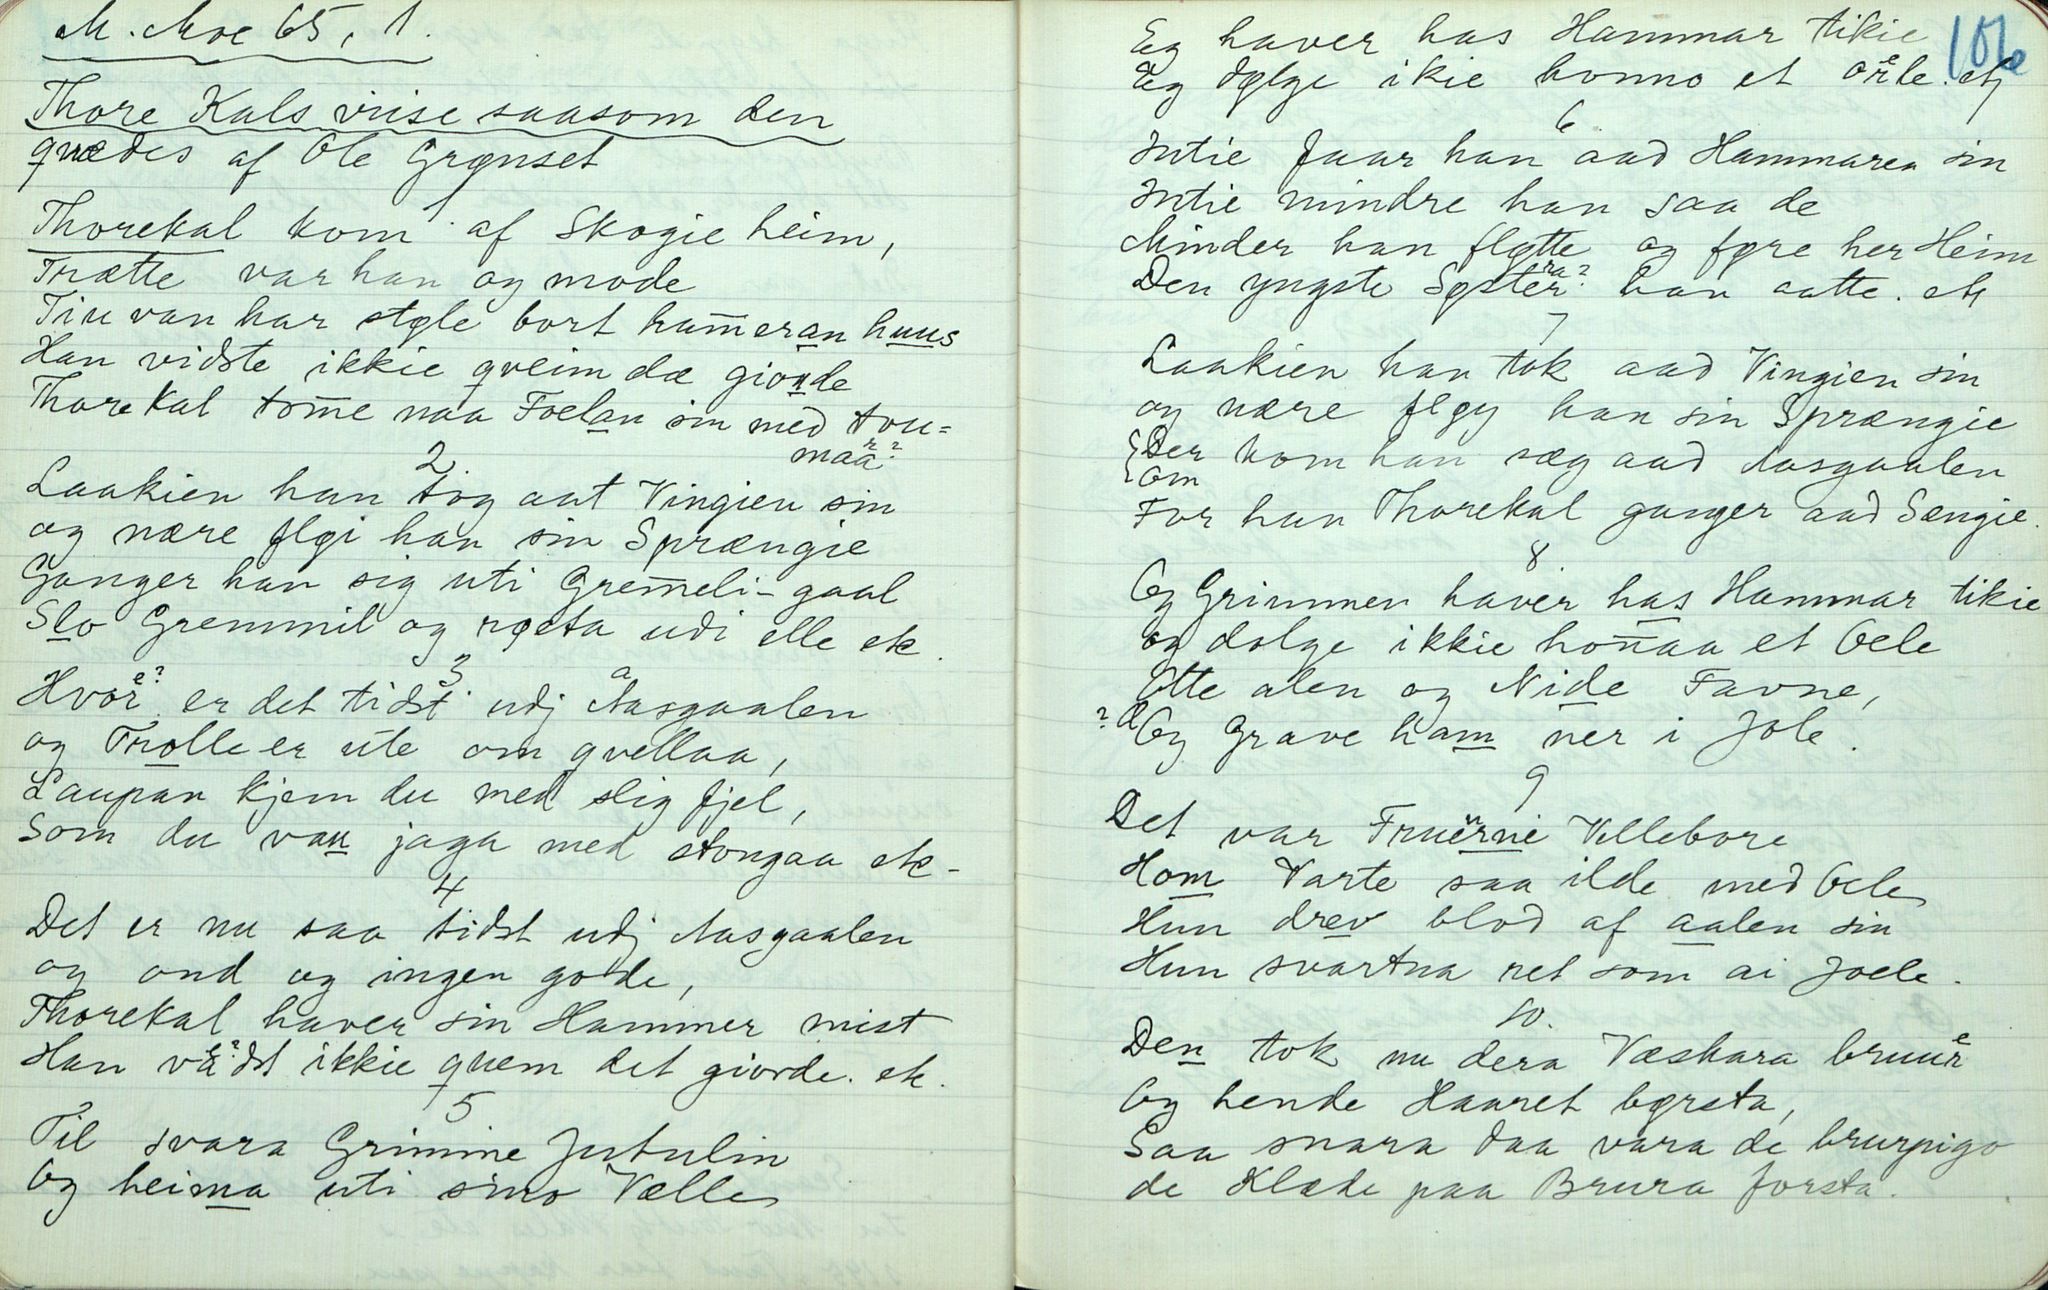 M. Moe 65, 1.
Thore Kals viise saasom den
quædes af Ole Grønset
1.
Thorekal kom af Skogie heim,
Trætte var han og mode
Tiu van har støle bort ham̅eran huus
Han vidste ikkie qveim dæ gionde
Thore Kal tom̅e naa Foelan sin med tou=
maa r?
2.
Laakien han tog aat Vingien sin
og nære fløi han sin Sprængie
Ganger han sig uti Grem̅eli-gaal
Slo Gremmil og røeta udi elle etc.
3
Hvor e? er det tidst udj Aasgaalen a
og Trolle er ute om qvellaa,
Laupan kjem du med slig fjel,
Som du vau jaga med stongaa etc-
4
Det er nu saa tidst udj Aasgaalen
og ond og ingen gode,
Thorekal haver sin Hammer mist
Han vædst e? ikkie quem det giorde. etc.
5
Til svara Grimme Jutulin
Og heima uti sino Vælle
106
Eg haver has Hammar tikie
Eg dølge ikie honno et orle e etc
6.
Intie faar han aad Hammaren sin
Intie mindre han saa de
Minder han fløtte og føre her Heim
Den yngste Søster ra? han aatte. etc
7
Laakien han tok aad Vingien sin
og nære fløy han sin Sprængie
Der kom han sæg aad Aasgaalen
Om
For han Thorekal ganger aad Sængie.
8.
Og Grimmen haver has Hammar tikie
og dolge ikkie hon̅aa et Oele
Otte alen og Nide Favne,
? d Og Grave ham ner i Jole.
9
Det var Fruerne n Villebore
Hom Varte saa ilde med Oele
Hun drev blod af aalen sin
Hun svartna ret som ai Joele.
10.
Den tok nu dera Væskara bruur e
Og hende Haaret børsta,
Saa snara daa vara de brurpigo
de Klæde paa Brura forsta.